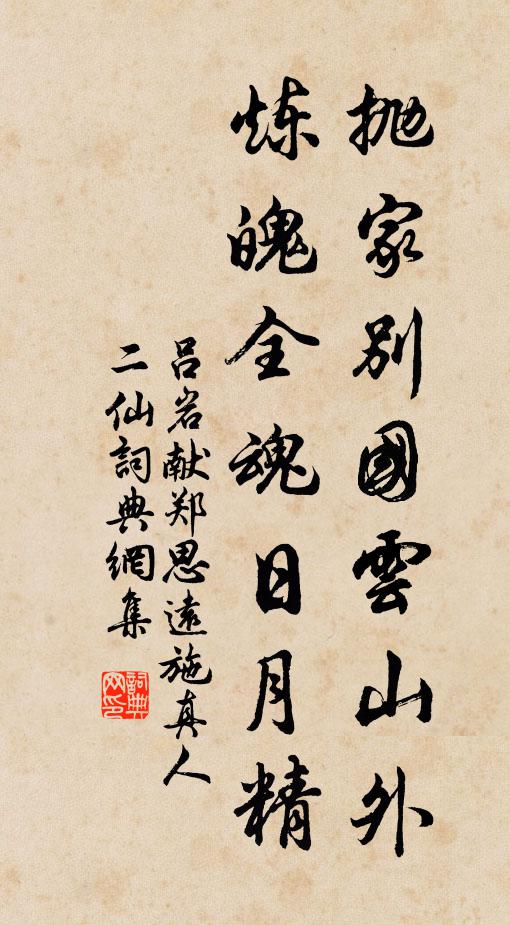 抛家别國雲山外
炼魄全魂日月精
吕岩献郑思遠施真人
二仙詞典網集
詞典
网印